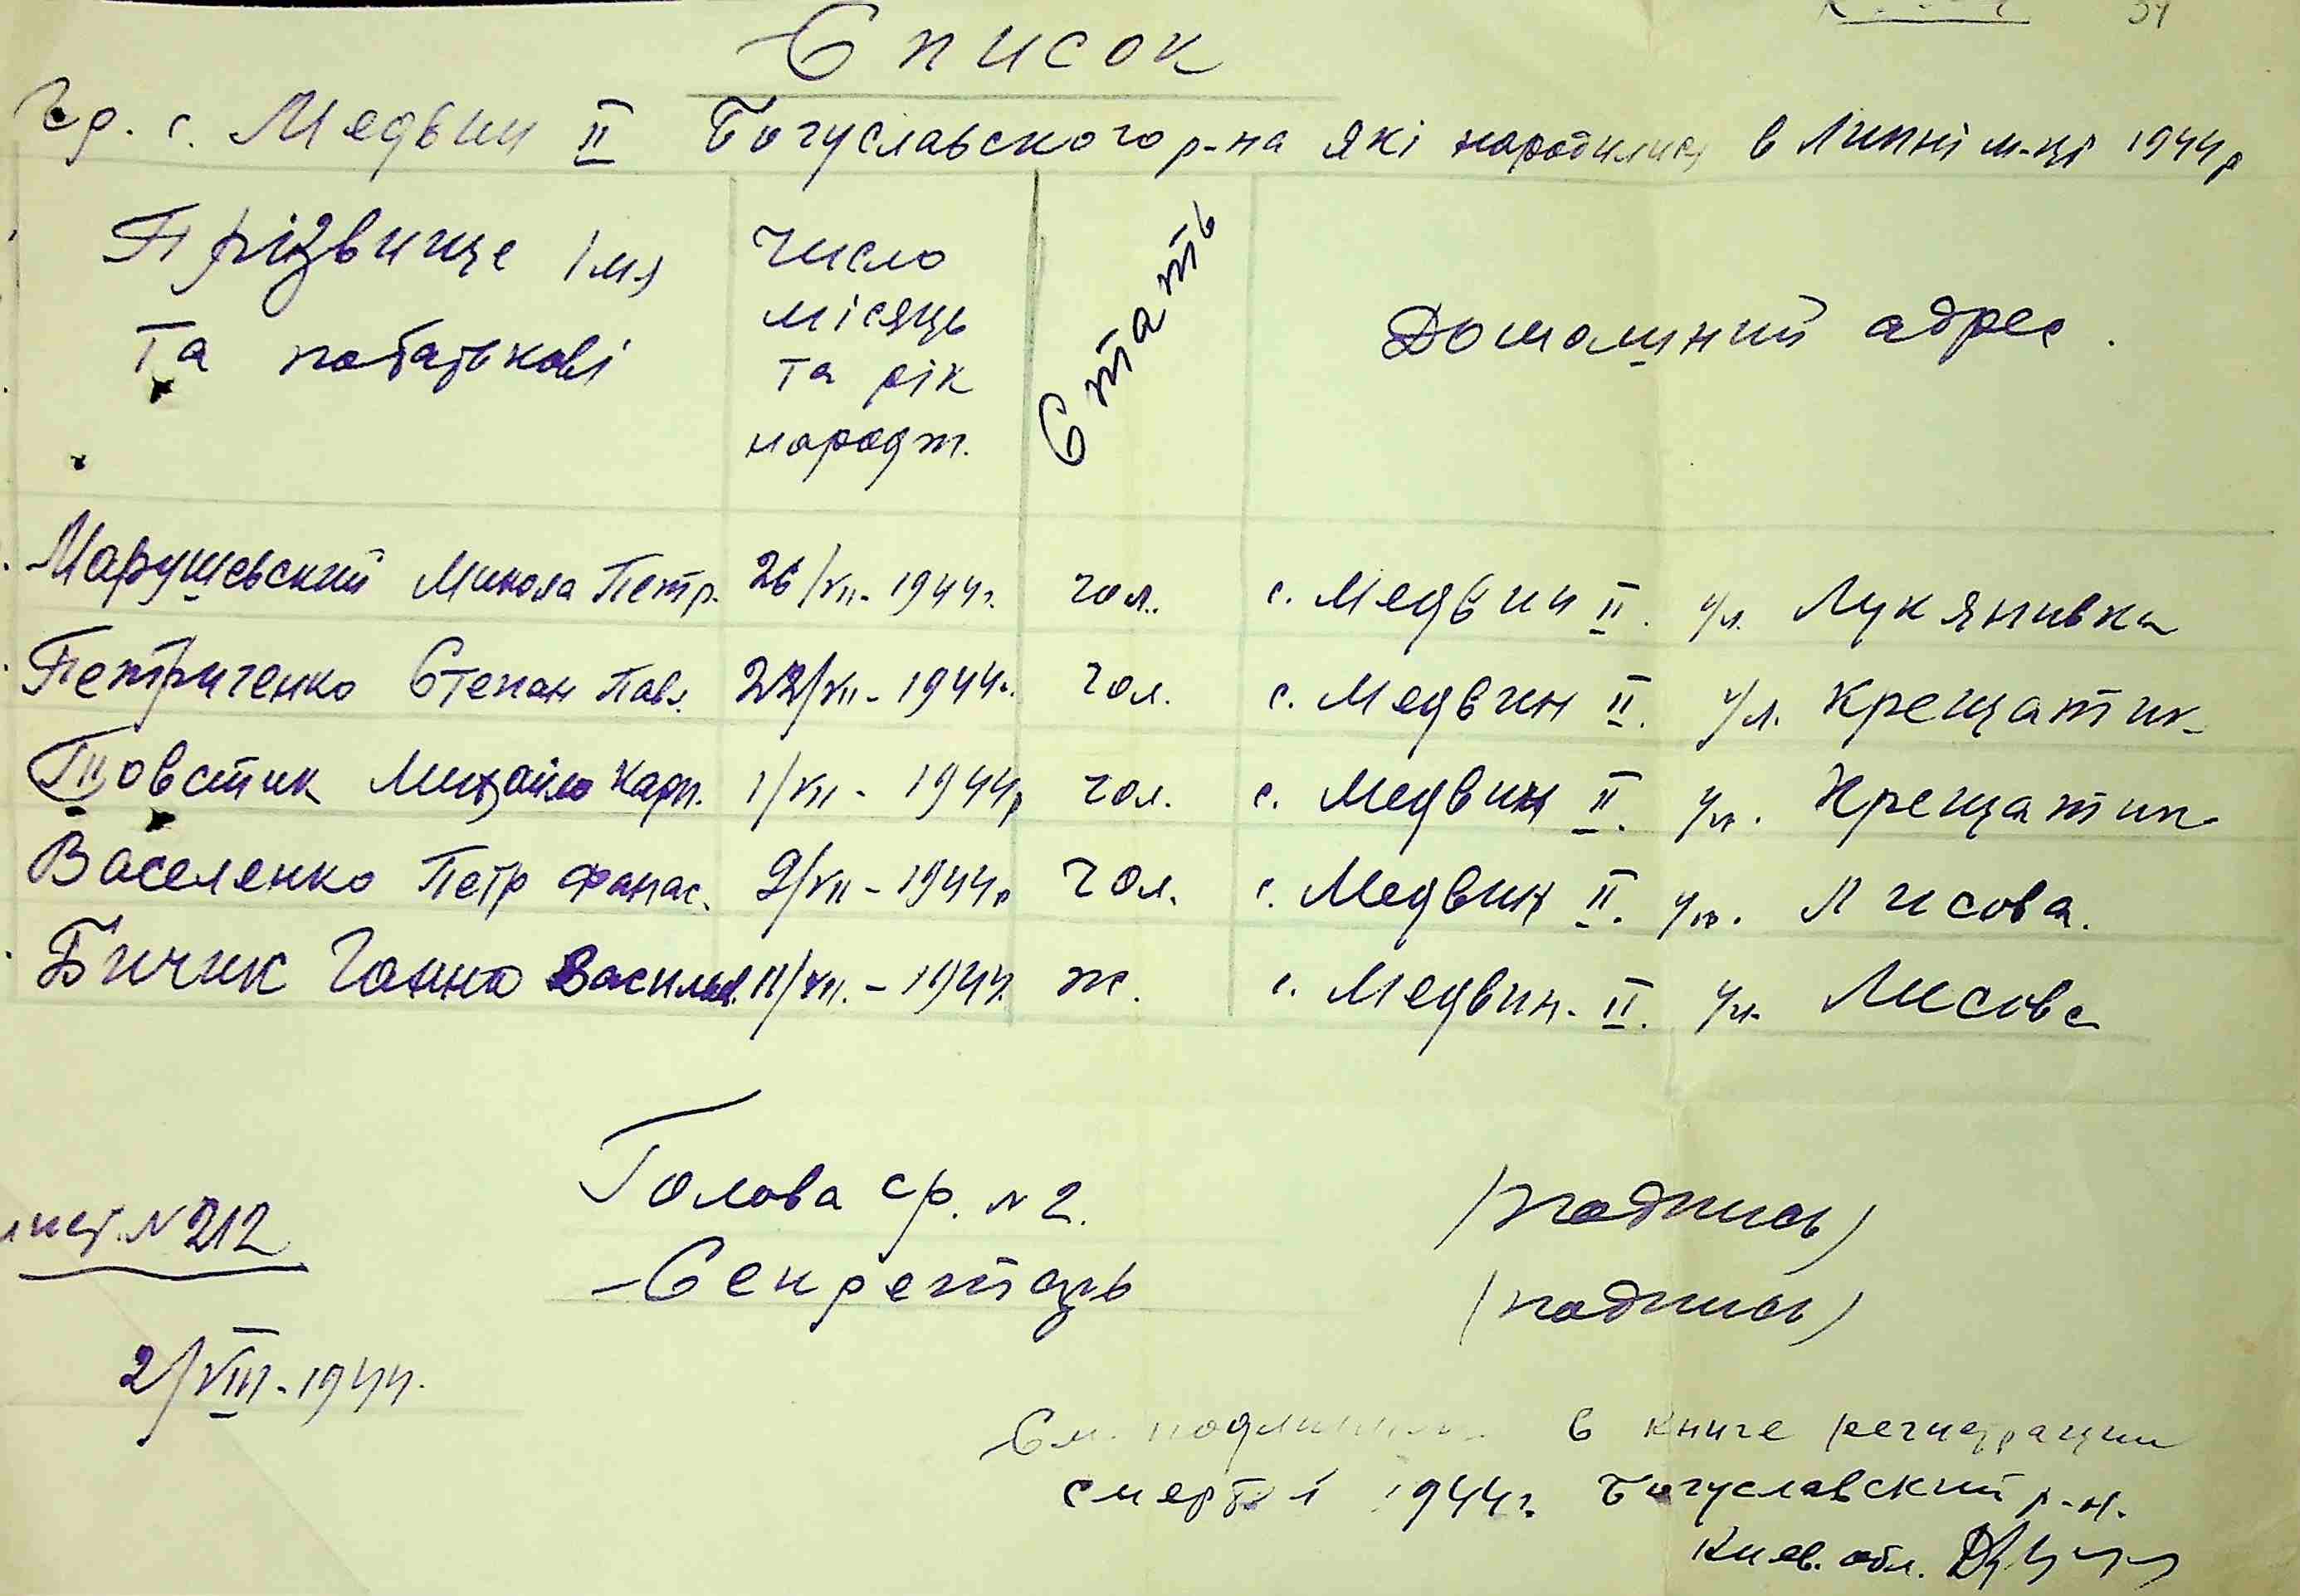 34
Список
Гр. с. Медвин II Богуславского р-на які народились в Липні м-ці 1944 р
Прізвище імя та побатькові
Число місяць та рік народж.
Стать
Домашний адрес.
Марушевский Микола Петр. 26/VII - 1944 г. чол. с. Медвин II. ул. Лукянивка
Петриченко Степан Павл. 22/VII - 1944 г. чол. с. Медвин II. ул. Крещатик
Товстик Михайло Карп. 1/VII - 1944 р чол. с. Медвин II. ул. Крещатик
Васеленко Петр Фанас. 9/VII - 1944 р чол. с. Медвин II. ул. Лисова.
Бичик Ганна Васильв. 11/VII. - 1944. ж. с. Медвин. II. ул. Лисова
Голова ср. N 2. (подпись)
лист. N 212
Секретарь (подпись)
2/VIII - 1944.
См. подлинник в книге регистрации
смерті 1944 г. Богуславский р-н.
Киев. обл.